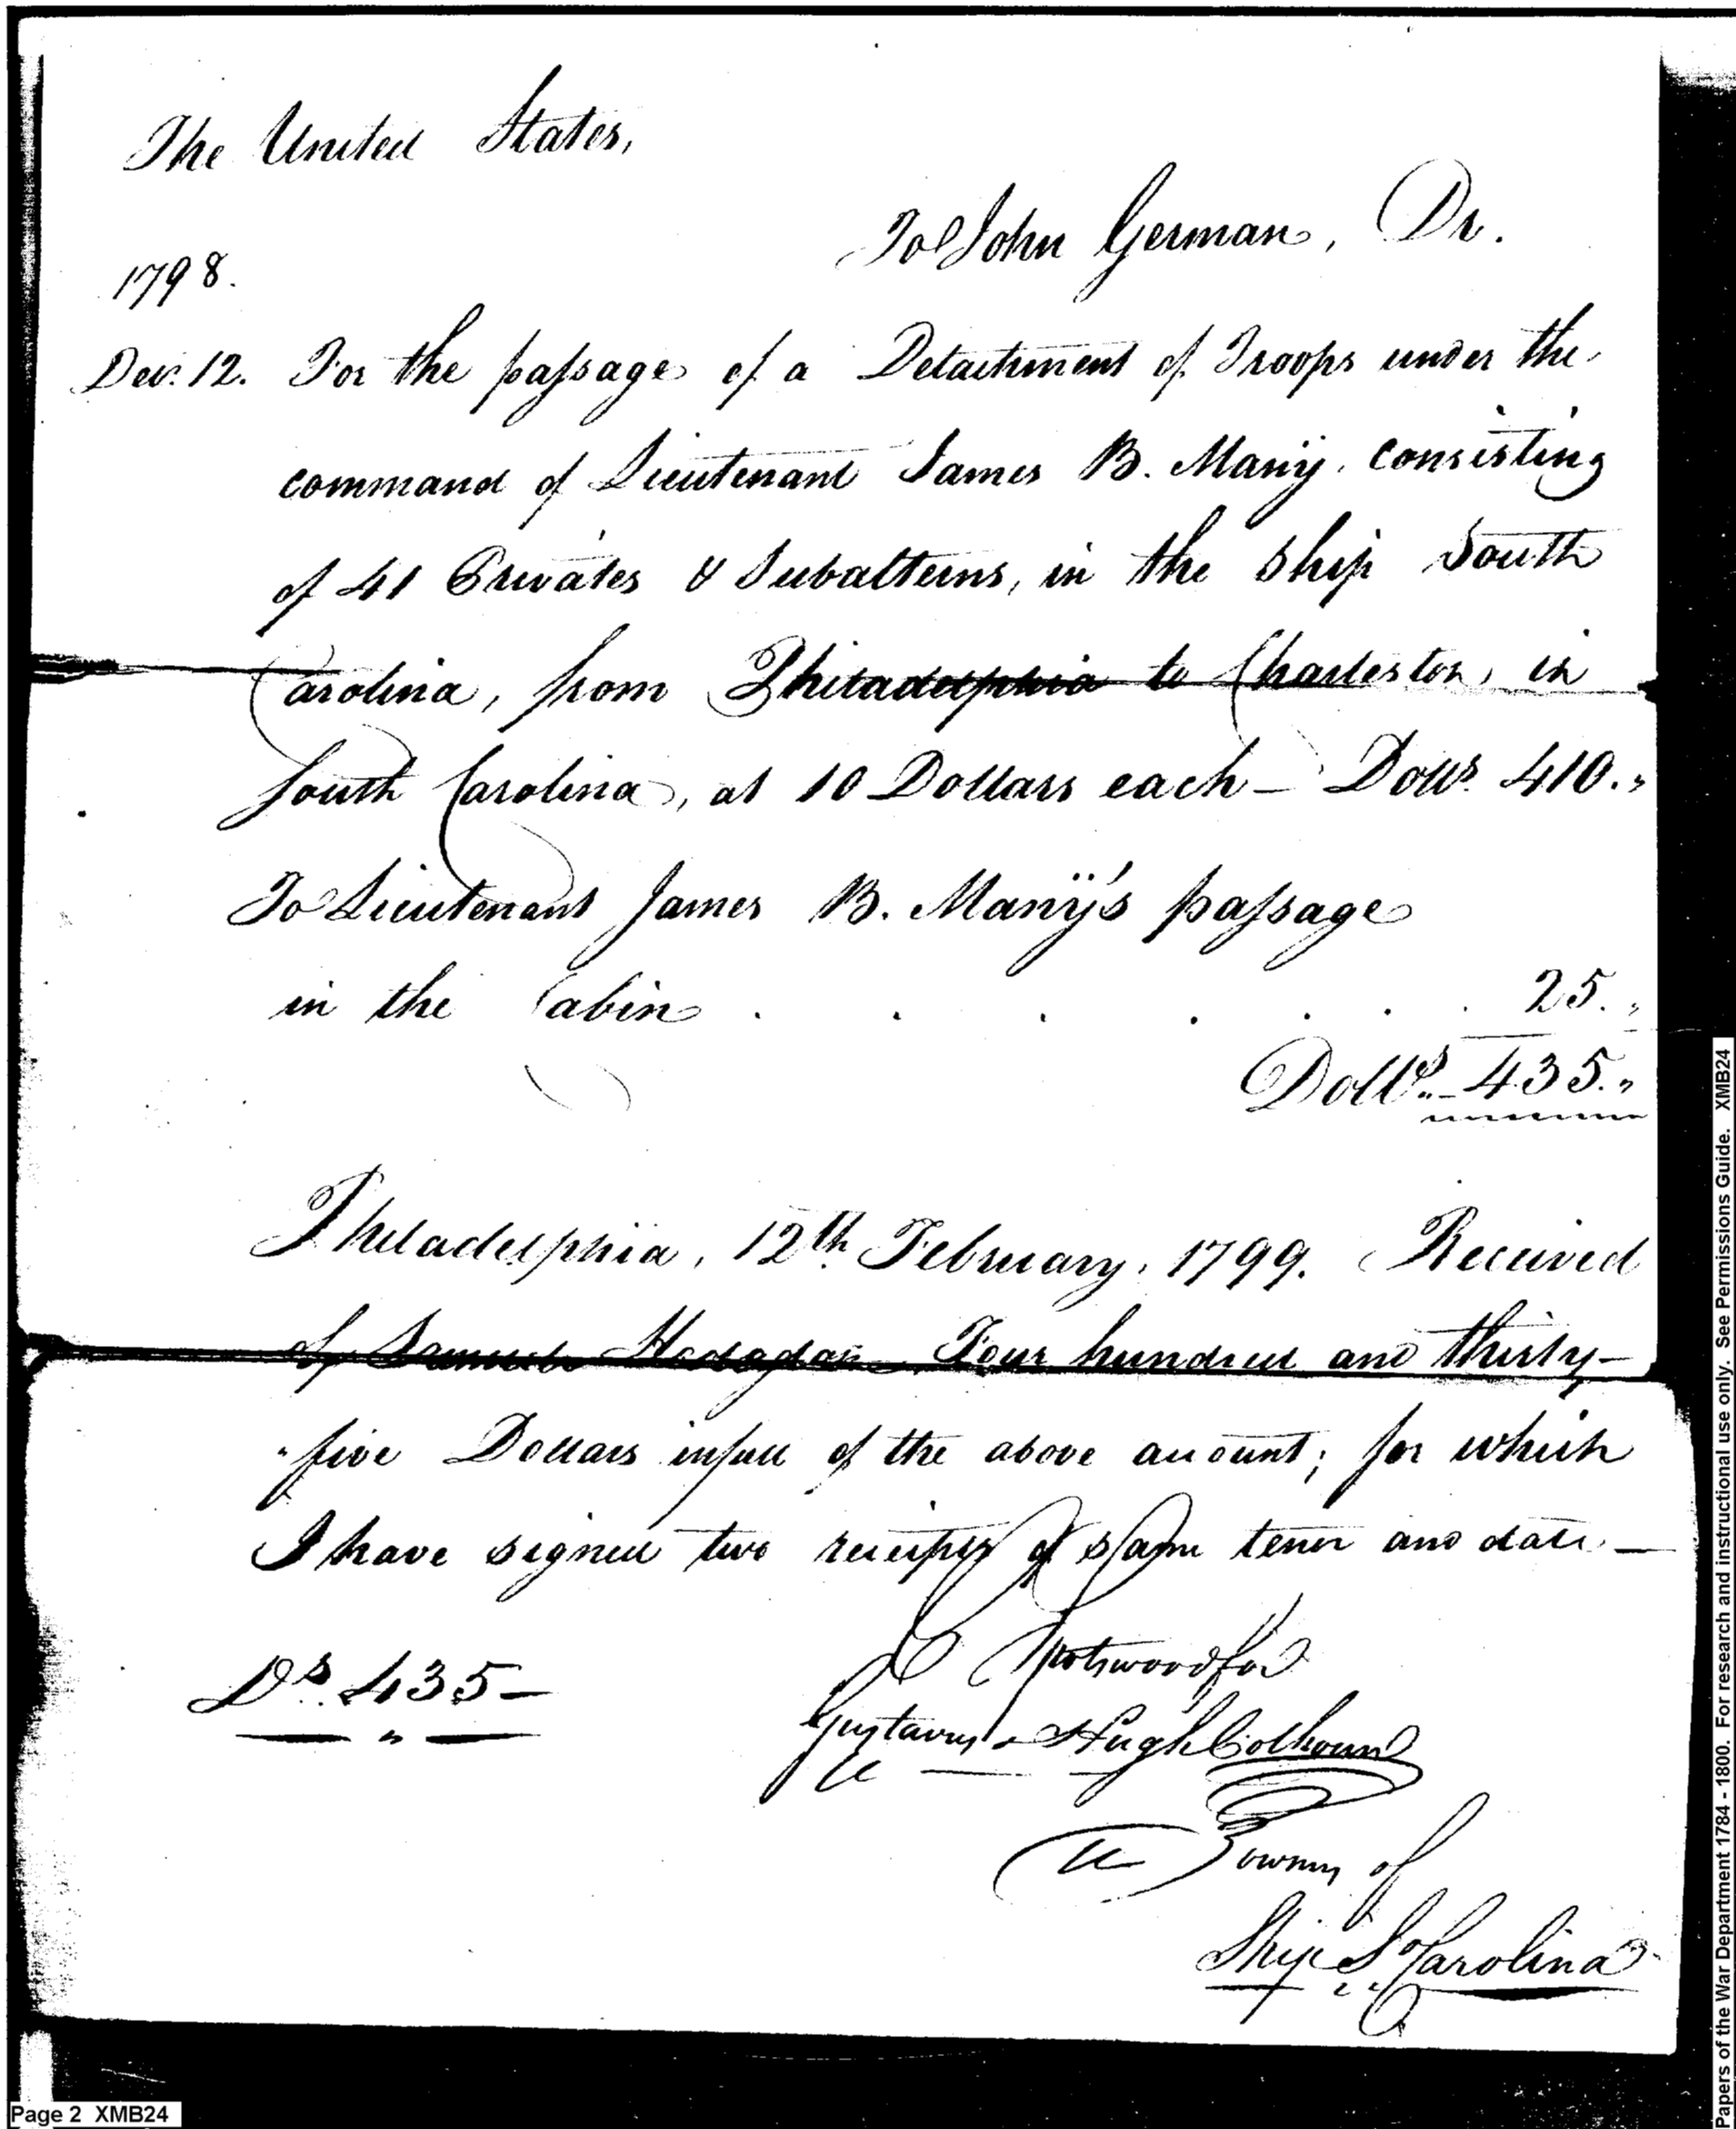 The United States,
To John German, Dr.
1798.
Decr. 12. For the passage of a Detachment of Troops under the
command of Lieutenant James B. Many, consisting
of 41 Privates & Subalterns, in the Ship South
Carolina, from Philadelphia to Charleston, in
South Carolina, at 10 Dollars each — Dolls. 410."
To Lieutenant James B. Many's passage
in the Cabin . . . . . . . 25."
Dolls. 435."
Philadelphia, 12th February, 1799. Received
of Samuel Hodgdon, Four hundred and thirty-
"five Dollars in full of the above account; for which
I have signed two receipts of same tenor and date. —
Ds. 435 —
Spotswood for
Gustavus & Hugh Colhoun
owners of
Ship So Carolina
Page 2 XMB24
Papers of the War Department 1784 - 1800. For research and instructional use only. See Permissions Guide. XMB24